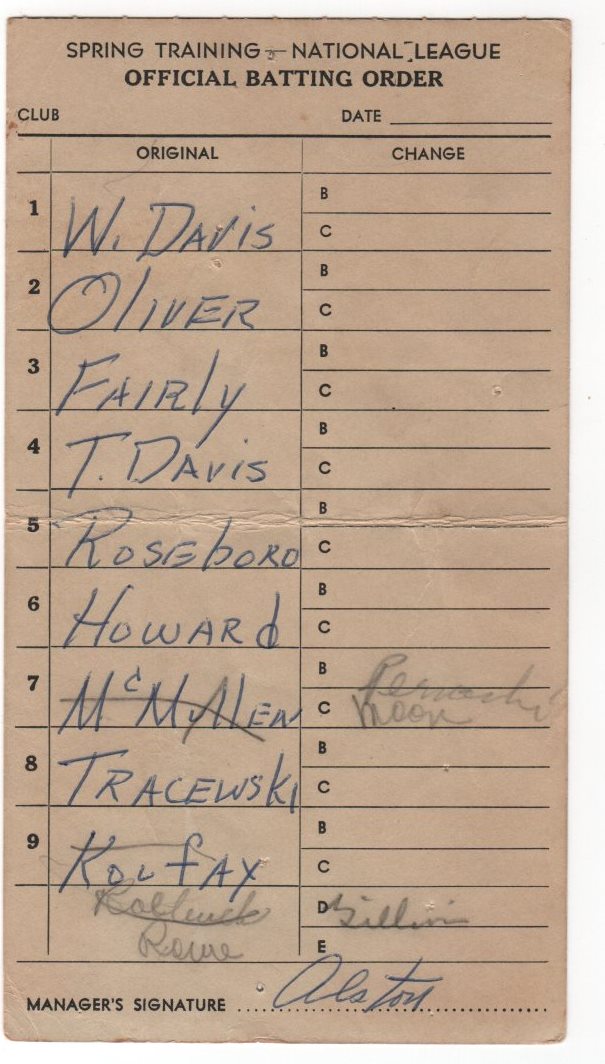 SPRING TRAINING - NATIONAL LEAGUE
OFFICIAL BATTING ORDER
CLUB DATE
ORIGINAL CHANGE
1 W. DAVIS B
C
2 OLIVER B
C
3 FAIRLY B
C
4 T. DAVIS B
C
5 ROSEBORO B
C
6 HOWARD B
C
7 McMULLEN B
C Moon
8 TRACEWSKI B
C
9 KOUFAX B
C
D
Rowe E
MANAGER'S SIGNATURE Alston